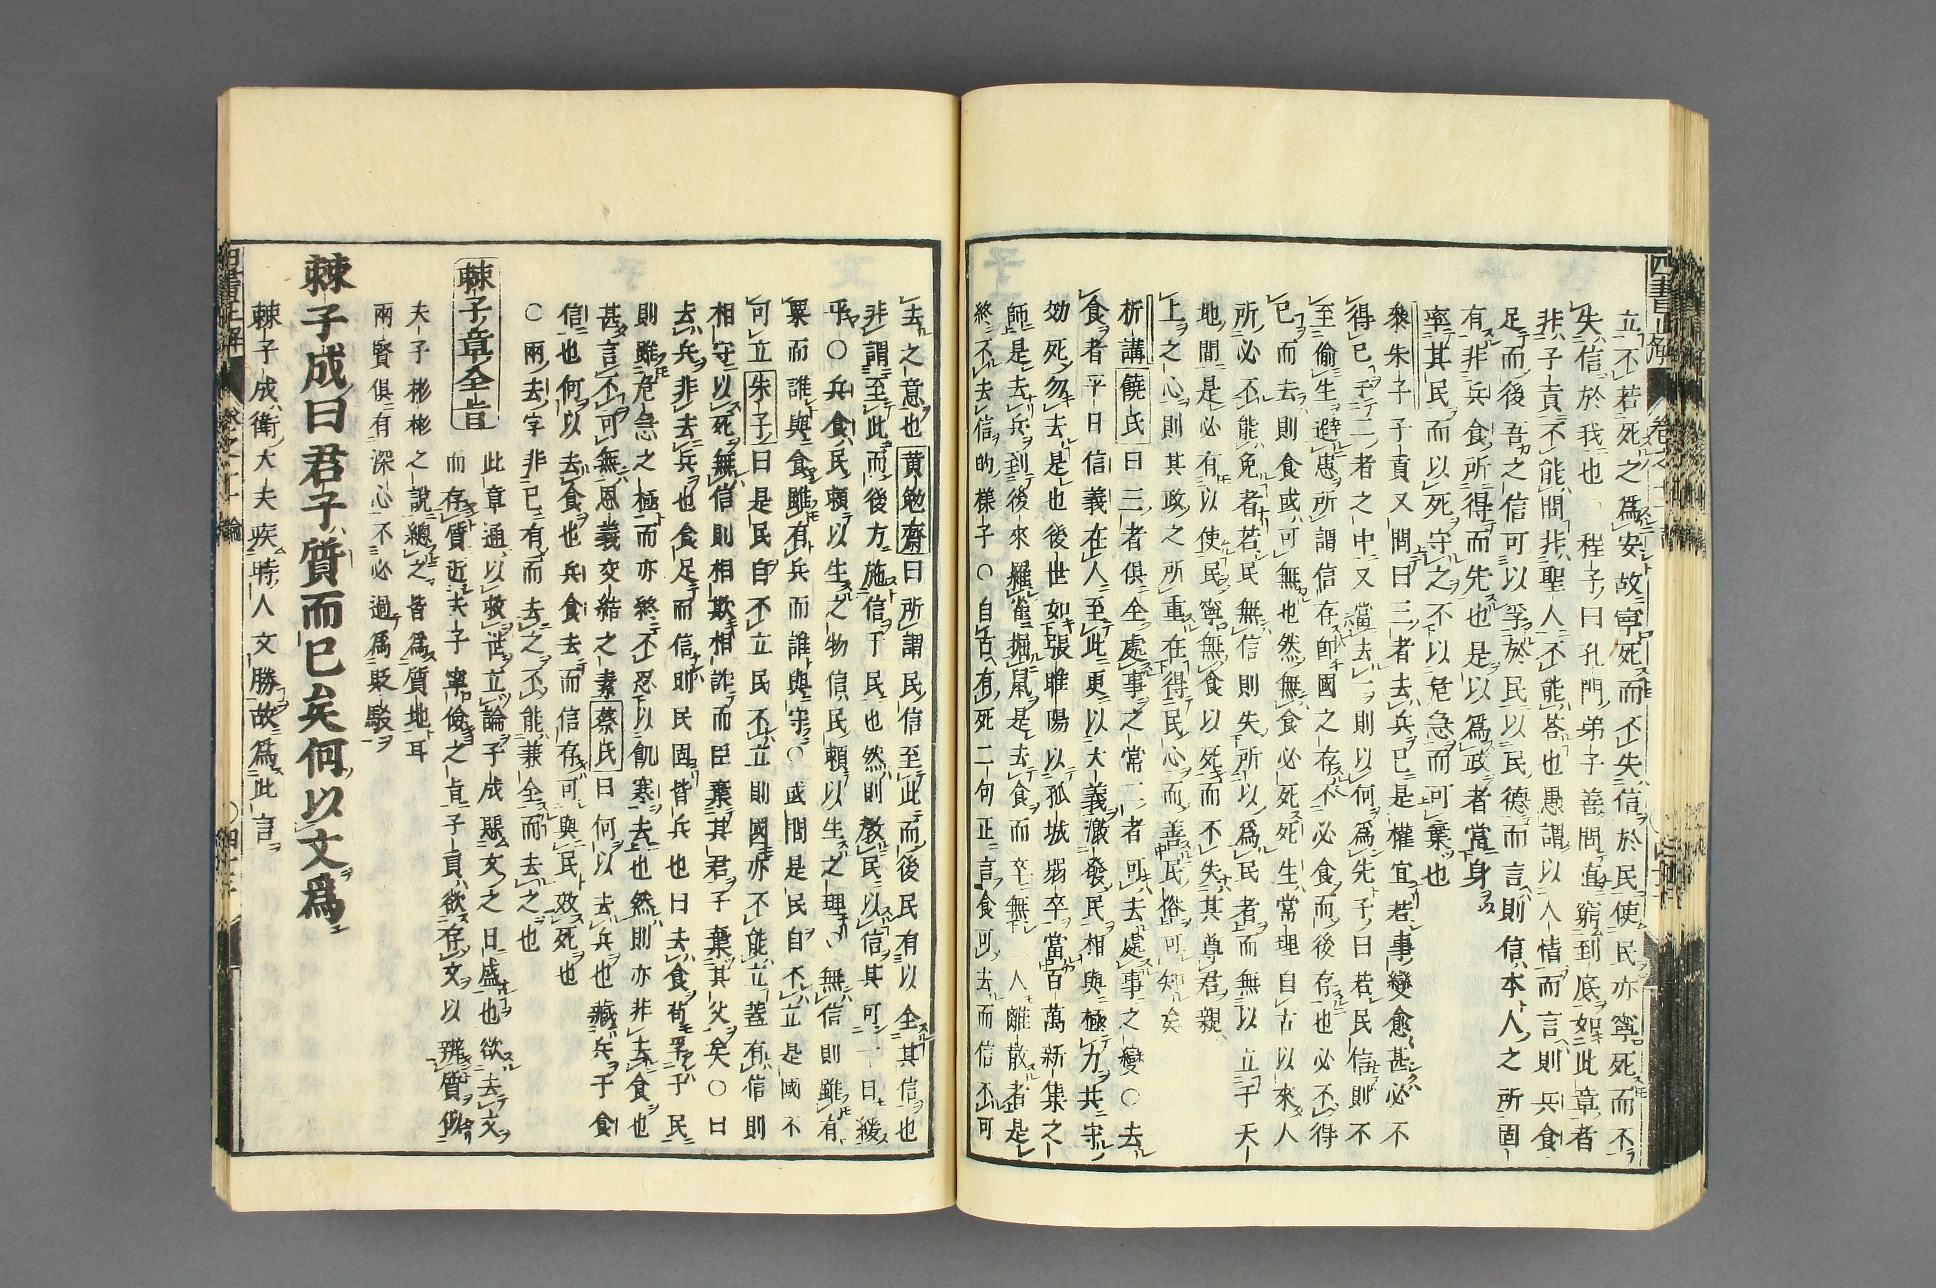 立不若死之爲安故寧死而不失信於民使民亦寧死而不
失信於我也 程子曰孔門弟子善問直窮到底如此章者
非子貢不能問非聖人不能答也愚謂以人情而言則兵食
足而後吾之信可以孚於民以民德而言則信本人之所固
有非兵食所得而先也是以爲政者當身
率其民而以死守之不以危急而可棄也
叅朱子子貢又問曰三者去兵已是權宜若事變愈甚必不
得已于二者之中又當去一則以何爲先子曰若民信則不
至偷生避患所謂信存卽國之存不必食而後存也必不得
已而去則食或可無也然無食必死死生常理自古以來人
所必不能免者若民無信則失所以爲民者而無以立于天
地間是必有以使民寧無食以死而不失其尊君親
上之心則其政之所重在得民心而善民俗可知矣
析講饒氏曰三者俱全處事之常二者可去處事之變○去
食者平日信義在人至此更以大義激發民相與極力共守
効死勿去是也後世如張睢陽以孤城弱卒當百萬新集之
師是去兵到後來羅雀掘鼠是去食而卒無一人離散者是
終不去信的樣子○自古有死二句正言食可去而信不可
去之意也黄勉齋曰所謂民信至此而後民有以全其信也
非謂至此而後方施信于民也然則教民以信其可一日緩
乎○兵食民頼以生之物信民頼以生之理○無信則雖有
粟而誰與食雖有兵而誰與守○或問是民自不立是國不
可立朱子曰是民自不立民不立則國亦不能立蓋有信則
相守以死無信則相欺相詐而臣棄其君子棄其父矣○曰
去兵非去兵也食足而信則民固皆兵也曰去食苟孚于民
則雖危急之極而亦終不忍以飢寒去也然則亦非去食也
甚言不可無恩義交結之素蔡氏曰何以去兵也藏兵于食
信也何以去食也兵食去而信存可與民效死也
○兩去字非已有而去之不能兼全而去之也
棘子章全旨
此章通以救泚立論子成惡文之日盛也欲去文
而存質近夫子寧儉之旨子貢欲存文以辨質似
夫子彬彬之說總之皆爲質地耳
兩賢俱有深心不必過爲貶駁
棘子成曰君子質而已矣何以文爲
棘子成衛大夫疾時人文勝故爲此言